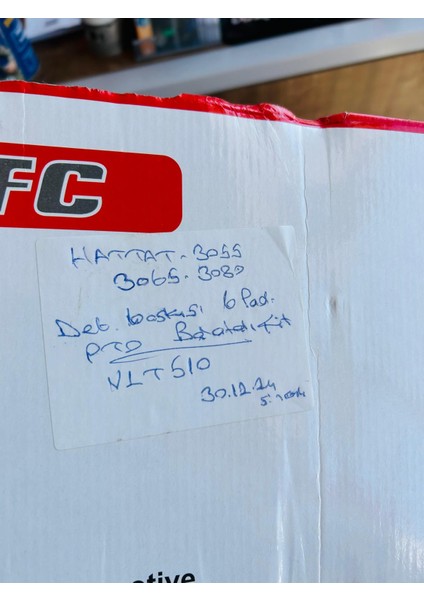 FC
HATTAT-3055
3065-3080
Deb. baskısı 6 Pad.
PTO
Kit
VLT510
30.12.24
otive